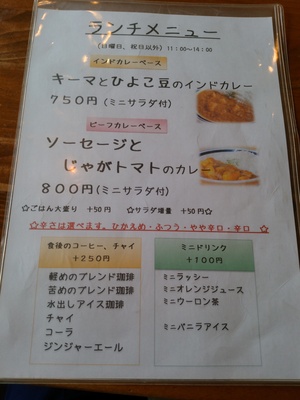 ランチメニュー
(日曜日、祝日以外) 11:00～16:00
インドカレーベース
キーマとひよこ豆のインドカレー
750円(ミニサラダ付)
ビーフカレーベース
ソーセージと
じゃがトマトのカレー
800円(ミニサラダ付)
☆ごはん大盛り +50円 ☆サラダ増量 +50円☆
☆辛さは選べます。ひかえめ・ふつう・やや辛口・辛口 ☆
食後のコーヒー、チャイ
+250円
軽めのブレンド珈琲
苦めのブレンド珈琲
水出しアイス珈琲
チャイ
コーラ
ジンジャーエール
ミニドリンク
+100円
ミニラッシー
ミニオレンジジュース
ミニウーロン茶
ミニバニラアイス